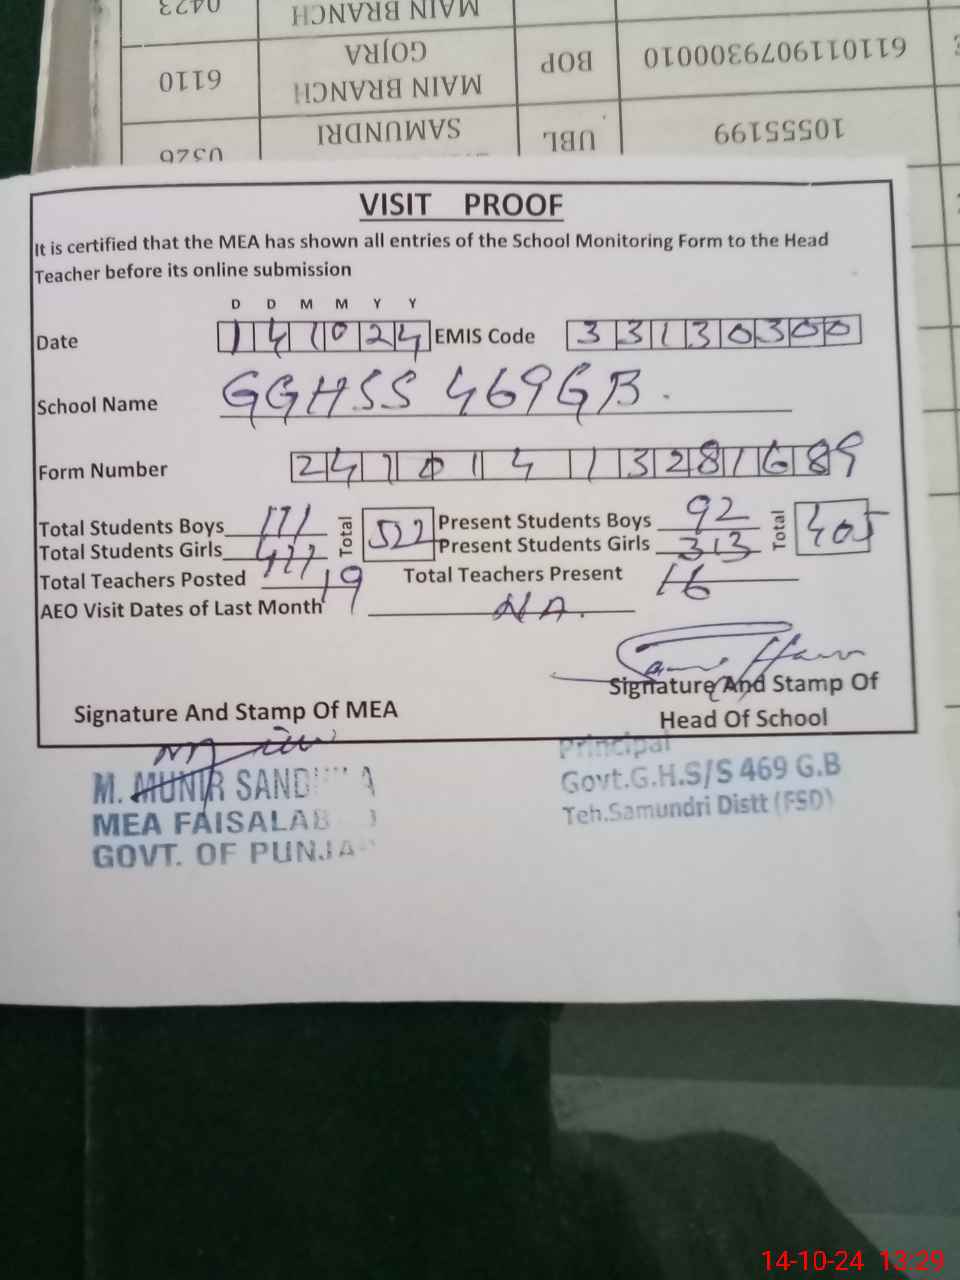 0423 MAIN BRANCH
6110 MAIN BRANCH GOJRA BOP 6110119079300010
0326 SAMUNDRI UBL 10555199
VISIT PROOF
It is certified that the MEA has shown all entries of the School Monitoring Form to the Head
Teacher before its online submission
D D M M Y Y
Date 14 10 24 EMIS Code 33130300
School Name GGHSS 469GB.
Form Number 24101413281689
Total Students Boys 111 Total 522 Present Students Boys 92 Total 405
Total Students Girls 411 Present Students Girls 313
Total Teachers Posted 19 Total Teachers Present 16
AEO Visit Dates of Last Month NA.
Signature And Stamp Of MEA
Signature And Stamp Of
Head Of School
M. MUNIR
MEA
GOVT. OF
Principal
Govt.G.H.S/S 469 G.B
Teh.Samundri Distt (FSD)
14-10-24 13:29